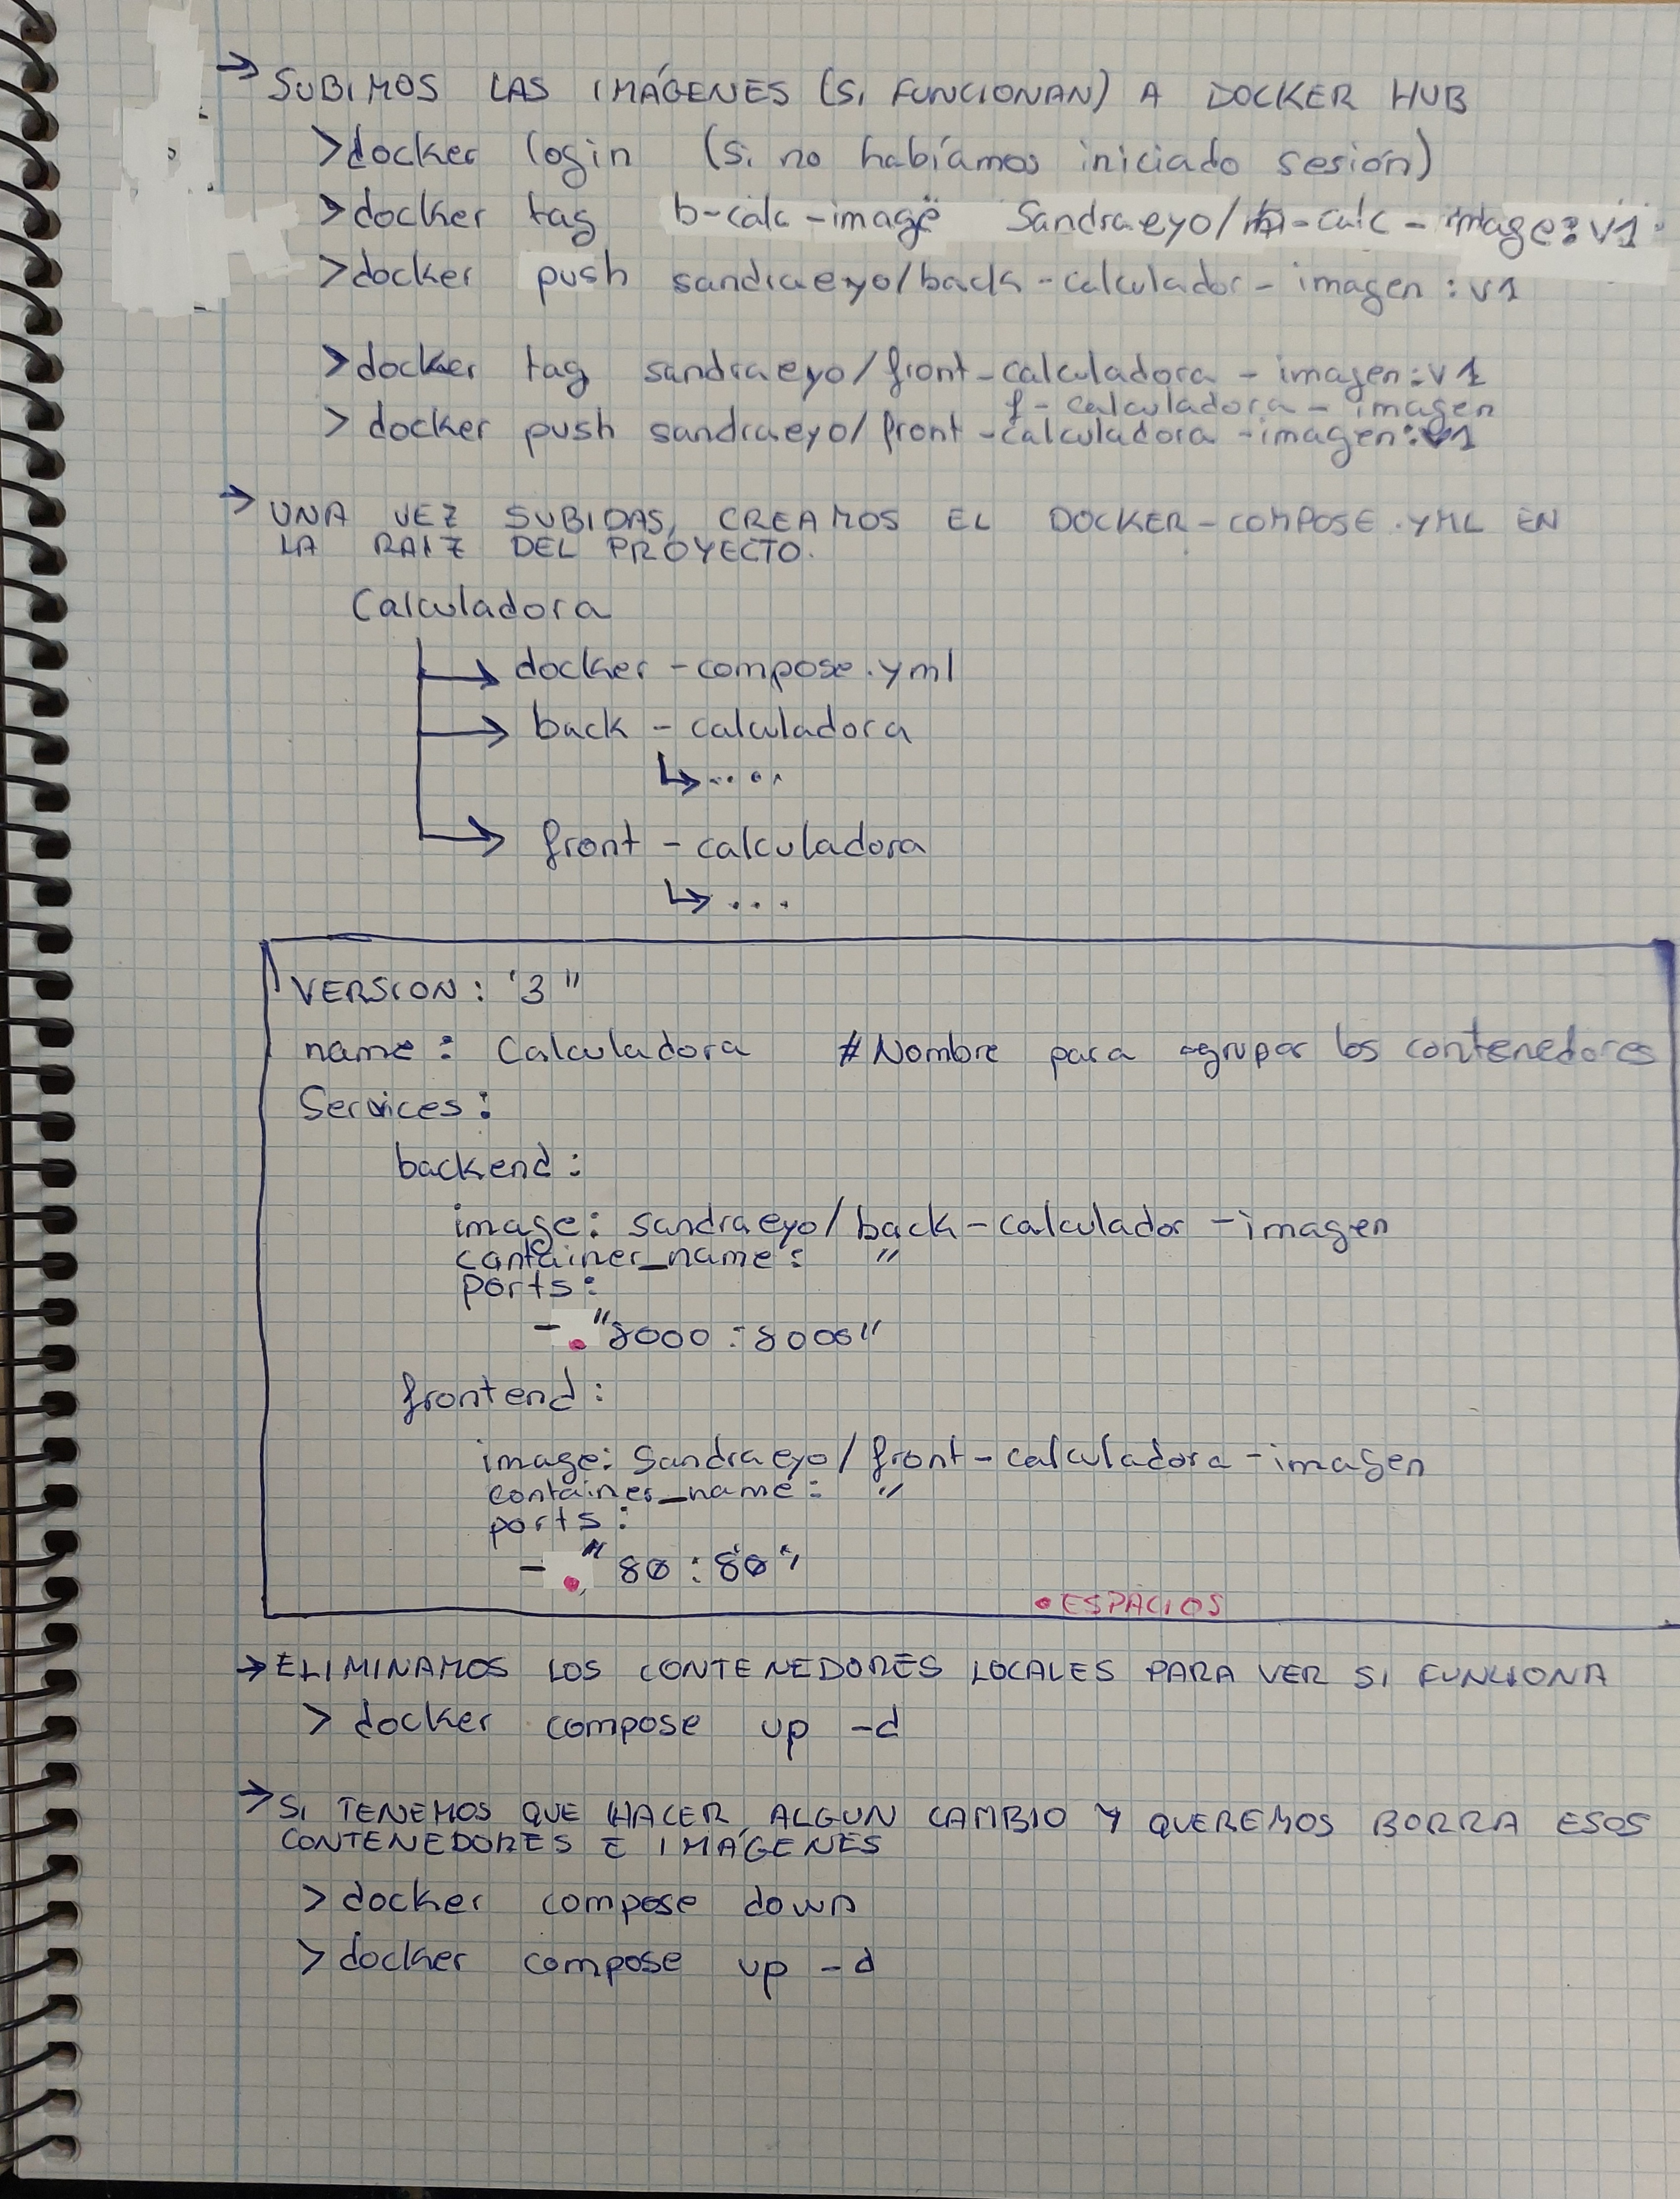 → SUBIMOS LAS IMÁGENES (Si FUNCIONAN) A DOCKER HUB
>docker login (si no habíamos iniciado sesión)
>docker tag b-calc-image Sandraeyo/b-calc-image:v1
>docker push sandraeyo/back-calculador-imagen:v1
>docker tag sandraeyo/front-calculadora-imagen:v1
f-calculadora-imagen
> docker push sandraeyo/front-calculadora-imagen:v1
→ UNA VEZ SUBIDAS, CREAMOS EL DOCKER-COMPOSE.YML EN
LA RAIZ DEL PROYECTO.
Calculadora
→ docker-compose.yml
→ back-calculadora
↳....
→ front-calculadora
↳...
VERSION: '3"
name: Calculadora #Nombre para agrupar los contenedores
Services:
backend:
image: sandraeyo/back-calculador-imagen
container_name: "
ports:
- "8000:8000"
frontend:
image: Sandraeyo/front-calculadora-imagen
container_name: "
ports:
- "80:80"
• ESPACIOS
→ ELIMINAMOS LOS CONTENEDORES LOCALES PARA VER SI FUNCIONA
> docker compose up -d
→ Si TENEMOS QUE HACER ALGUN CAMBIO Y QUEREMOS BORRA ESOS
CONTENEDORES E IMÁGENES
> docker compose down
> docker compose up -d